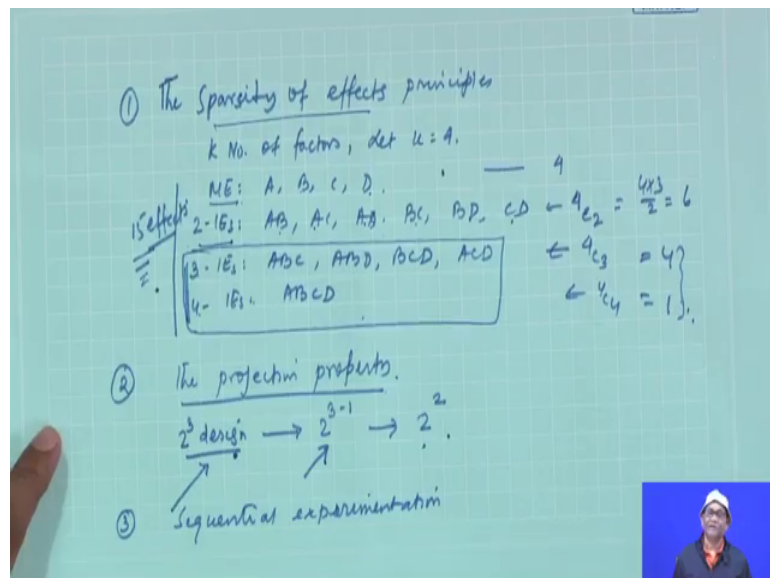 ① The Sparsity of effects principles
K No. of factors, let k = 4.
ME: A, B, C, D. — 4
15 effects
2-IEs: AB, AC, AD. BC, BD, CD ← 4c2 = 4×3/2 = 6
3-IEs: ABC, ABD, BCD, ACD ← 4c3 = 4
4-IEs. ABCD ← 4c4 = 1
② The projection property.
2^3 design → 2^(3-1) → 2^2.
③ Sequential experimentation